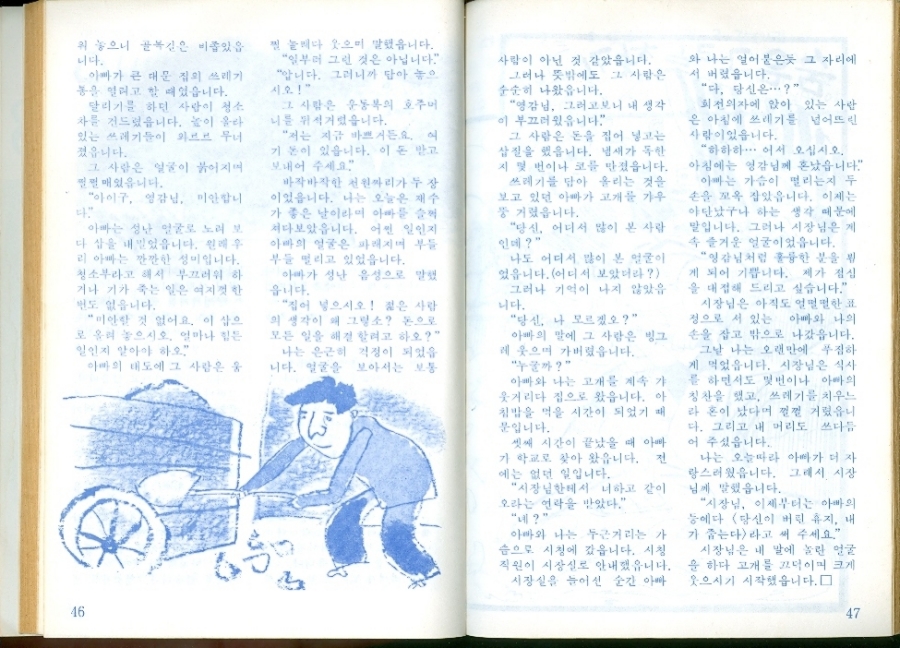 워 놓으니 골목길은 비좁았읍
니다.
아빠가 큰 대문 집의 쓰레기
통을 열려고 할 때였읍니다.
달리기를 하던 사람이 청소
차를 건드렸읍니다. 높이 올라
있는 쓰레기들이 와르르 무너
졌읍니다.
그 사람은 얼굴이 붉어지며
쩔쩔매었읍니다.
“아이구, 영감님, 미안합니
다.”
아빠는 성난 얼굴로 노려 보
다 삽을 내밀었읍니다. 원래 우
리 아빠는 깐깐한 성미입니다.
청소부라고 해서 부끄러워 하
거나 기가 죽는 일은 여지껏 한
번도 없읍니다.
“미안할 것 없어요. 이 삽으
로 올려 놓으시오. 얼마나 힘든
일인지 알아야 하오.”
아빠의 태도에 그 사람은 움
찔 놀래다 웃으며 말했읍니다.
“일부러 그런 것은 아닙니다.”
“압니다. 그러니까 담아 놓으
시오!”
그 사람은 운동복의 호주머
니를 뒤적거렸읍니다.
“저는 지금 바쁘거든요. 여
기 돈이 있읍니다. 이 돈 받고
보내어 주세요.”
바작바작한 천원짜리가 두 장
이었읍니다. 나는 오늘은 재수
가 좋은 날이라며 아빠를 슬쩍
쳐다보았읍니다. 어쩐 일인지
아빠의 얼굴은 파래지며 부들
부들 떨리고 있었읍니다.
아빠가 성난 음성으로 말했
읍니다.
“집어 넣으시오! 젊은 사람
의 생각이 왜 그렇소? 돈으로
모든 일을 해결 할려고 하오?”
나는 은근히 걱정이 되었읍
니다. 얼굴을 보아서는 보통
46
사람이 아닌 것 같았읍니다.
그러나 뜻밖에도 그 사람은
순순히 나왔읍니다.
“영감님, 그러고보니 내 생각
이 부끄러웠읍니다.”
그 사람은 돈을 집어 넣고는
삽질을 했읍니다. 냄새가 독한
지 몇 번이나 코를 만졌읍니다.
쓰레기를 담아 올리는 것을
보고 있던 아빠가 고개를 갸우
뚱 거렸읍니다.
“당신, 어디서 많이 본 사람
인데?”
나도 어디서 많이 본 얼굴이
었읍니다.(어디서 보았더라?)
그러나 기억이 나지 않았읍
니다.
“당신, 나 모르겠오?”
아빠의 말에 그 사람은 빙그
레 웃으며 가버렸읍니다.
“누굴까?”
아빠와 나는 고개를 계속 갸
웃거리다 집으로 왔읍니다. 아
침밥을 먹을 시간이 되었기 때
문입니다.
셋째 시간이 끝났을 때 아빠
가 학교로 찾아 왔읍니다. 전
에는 없던 일입니다.
“시장님한테서 너하고 같이
오라는 연락을 받았다.”
“네?”
아빠와 나는 두근거리는 가
슴으로 시청에 갔읍니다. 시청
직원이 시장실로 안내했읍니다.
시장실을 들어선 순간 아빠
와 나는 얼어붙은듯 그 자리에
서 버렸읍니다.
“다, 당신은…?”
회전의자에 앉아 있는 사람
은 아침에 쓰레기를 넘어뜨린
사람이었읍니다.
“하하하… 어서 오십시오.
아침에는 영감님께 혼났읍니다.”
아빠는 가슴이 떨리는지 두
손을 꼬옥 잡았읍니다. 이제는
야단났구나 하는 생각 때문에
말입니다. 그러나 시장님은 계
속 즐거운 얼굴이었읍니다.
“영감님처럼 훌륭한 분을 뵙
게 되어 기쁩니다. 제가 점심
을 대접해 드리고 싶습니다.”
시장님은 아직도 얼떨떨한 표
정으로 서 있는 아빠와 나의
손을 잡고 밖으로 나갔읍니다.
그날 나는 오랜만에 푸짐하
게 먹었읍니다. 시장님은 식사
를 하면서도 몇번이나 아빠의
칭찬을 했고, 쓰레기를 치우느
라 혼이 났다며 껄껄 거렸읍니
다. 그리고 내 머리도 쓰다듬
어 주셨읍니다.
나는 오늘따라 아빠가 더 자
랑스러웠읍니다. 그래서 시장
님께 말했읍니다.
“시장님, 이제부터는 아빠의
등에다 (당신이 버린 휴지, 내
가 줍는다)라고 써 주세요.”
시장님은 내 말에 놀란 얼굴
을 하다 고개를 끄덕이며 크게
웃으시기 시작했읍니다.□
47